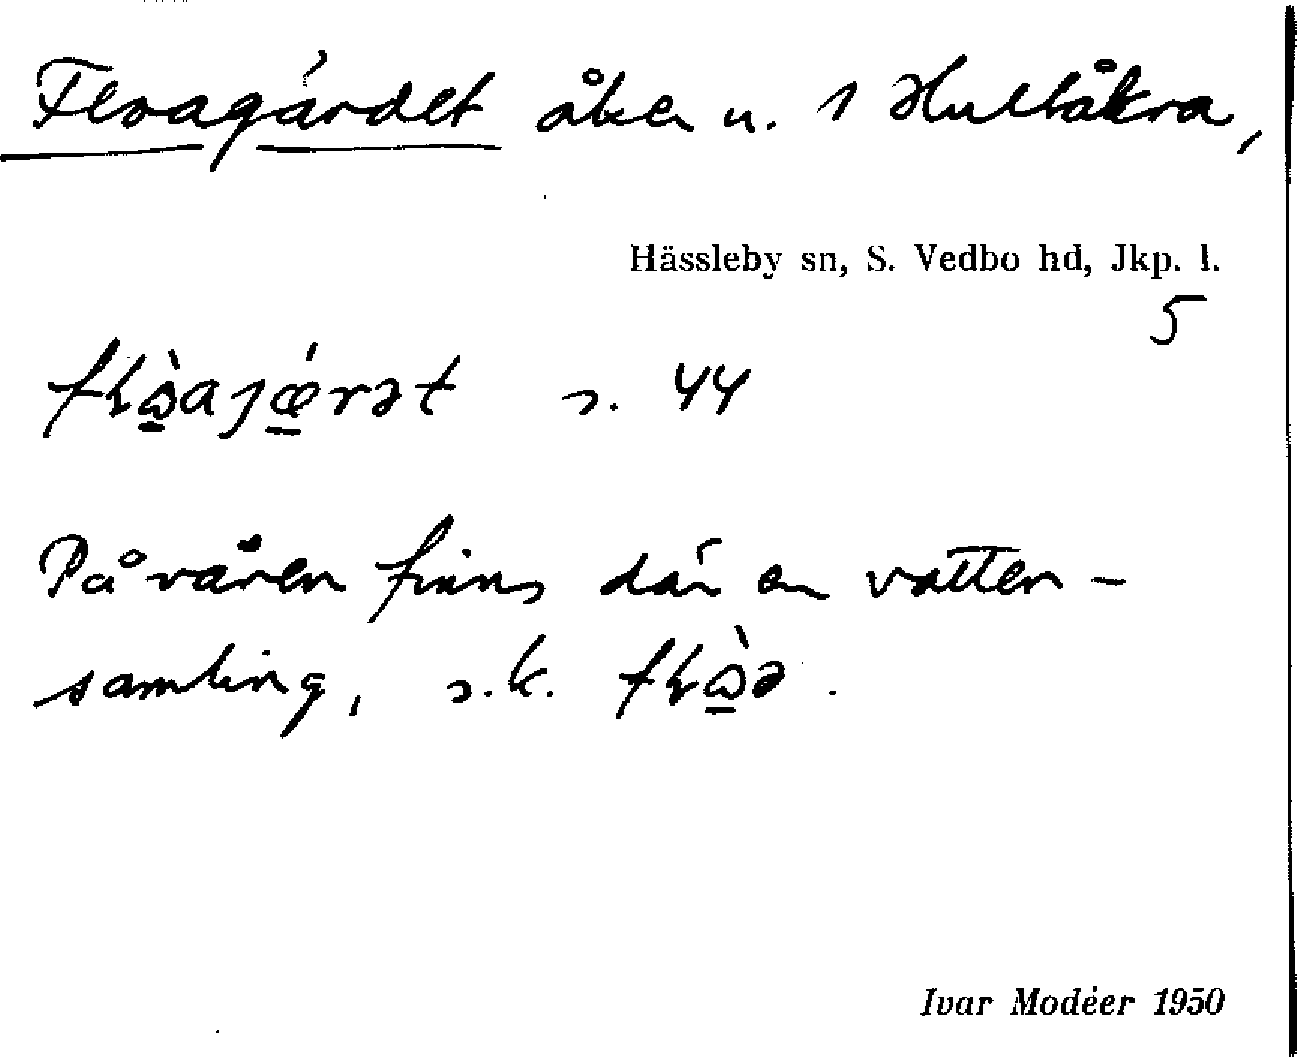 Floagärdet åker u. 1 Hultåkra,
Hässleby sn, S. Vedbo hd, Jkp. l.
5
s. 44
På våren finns där en vatten-
samling, s.k.
Ivar Modéer 1950